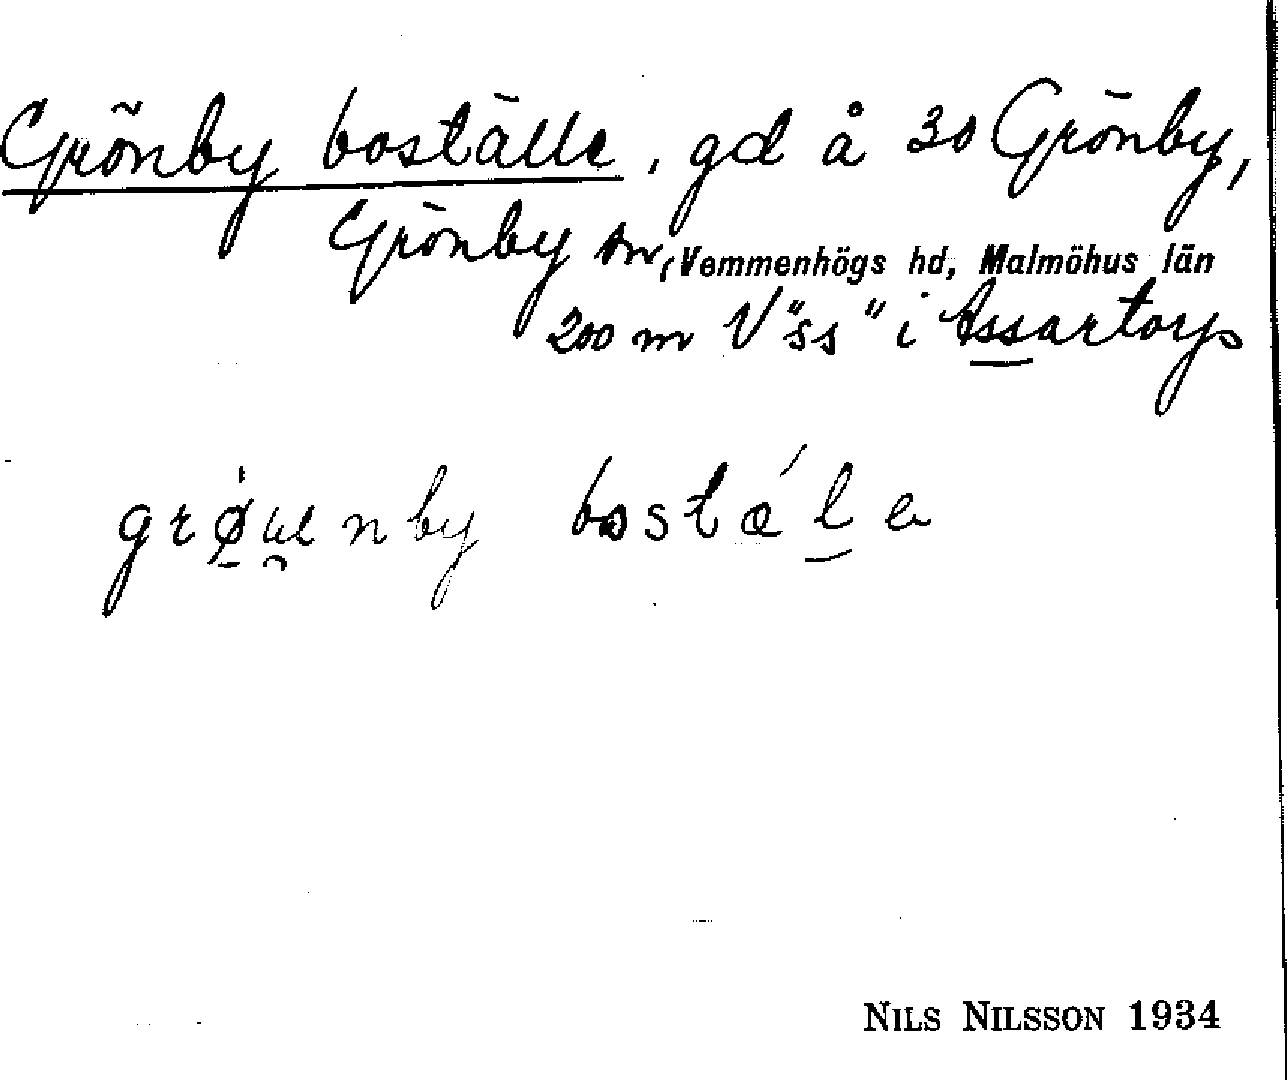 Grönby boställe, gd å 30 Grönby,
Grönby sn, Vemmenhögs hd, Malmöhus län
200 m V "ss" i Assartorp
grøɯnby bostæ´le
NILS NILSSON 1934